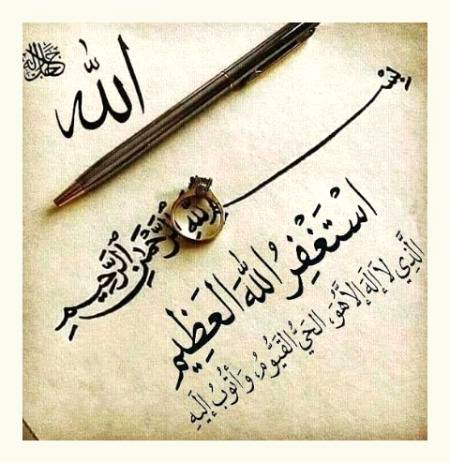 الله
بِسْمِ اللهِ الرَّحْمٰنِ الرَّحِيمِ
اسْتَغْفِرُ اللهَ العَظِيمِ
الَّذِي لاَ إِلَهَ إِلاَّ هُوَ، الحَيُّ القَيُّومُ، وَأَتُوبُ إِلَيهِ